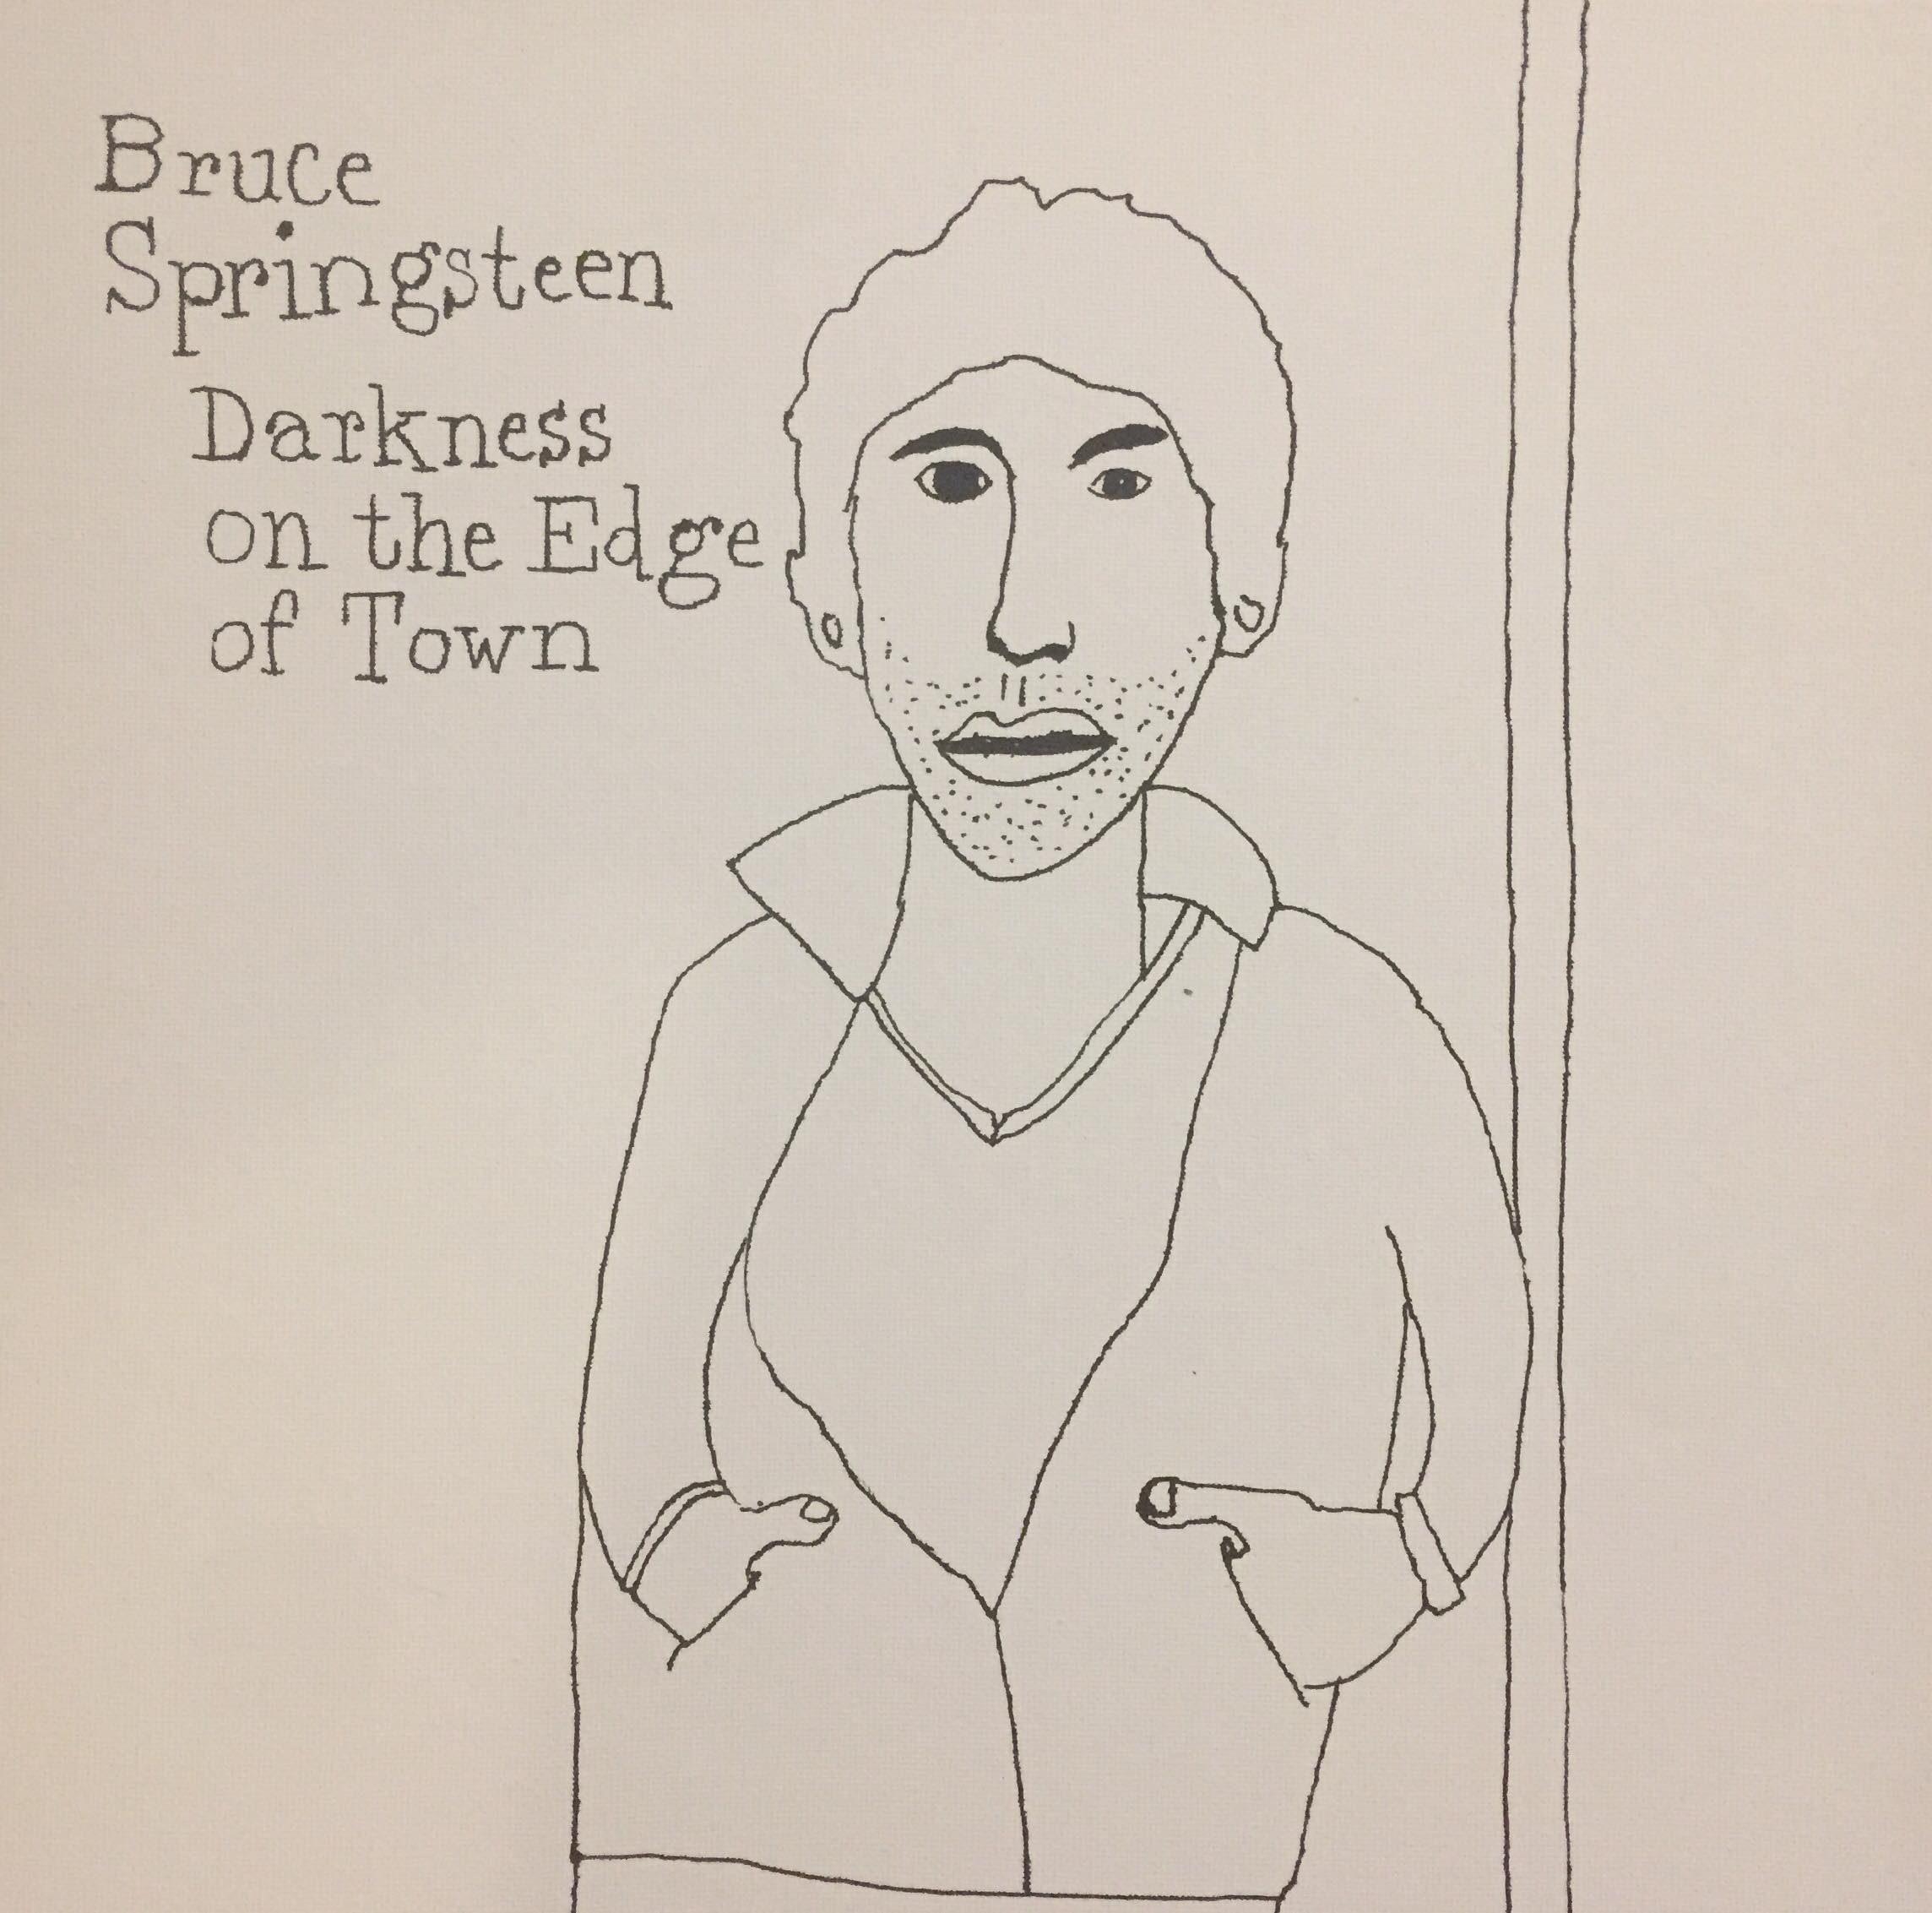 Bruce
Springsteen
Darkness
on the Edge
of Town